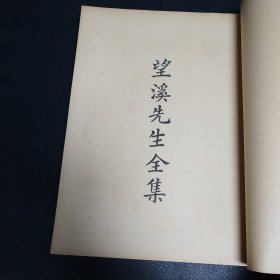 望溪先生全集